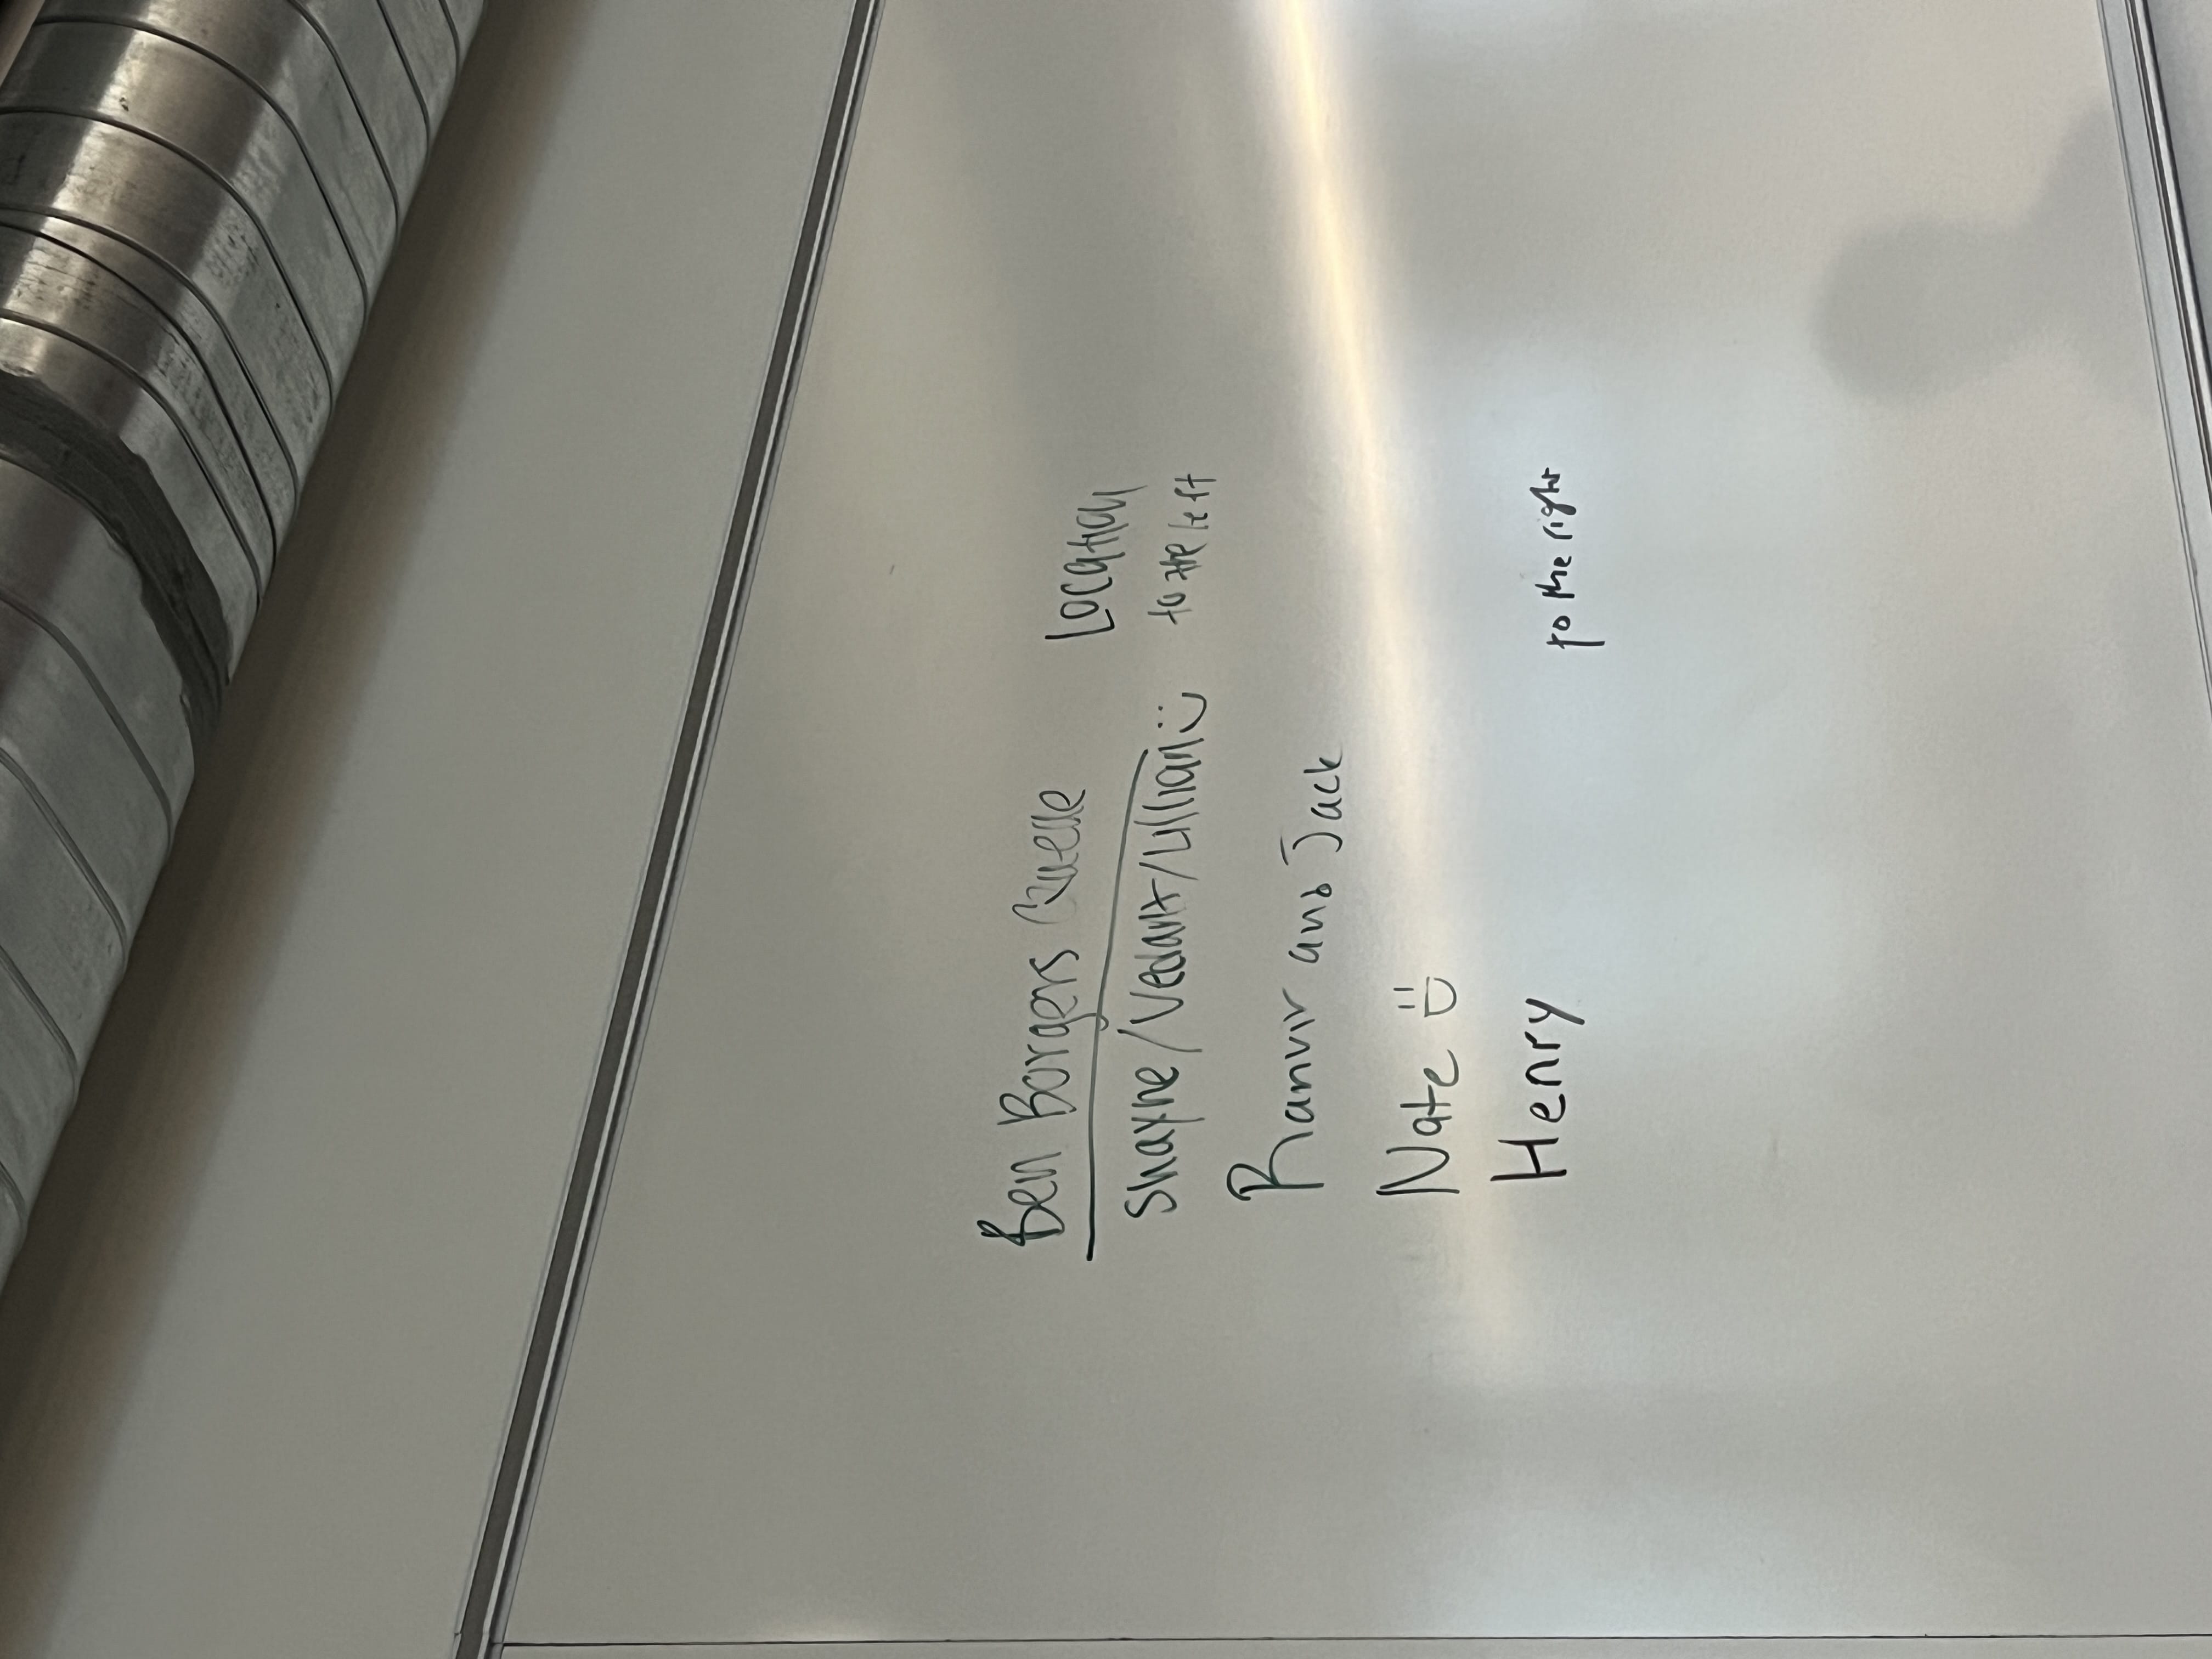 Ben Borgers Queue Location
Shayne/Vedant/Lillian :) to the left
Ranvir and Jack
Nate :D
Henry to the right